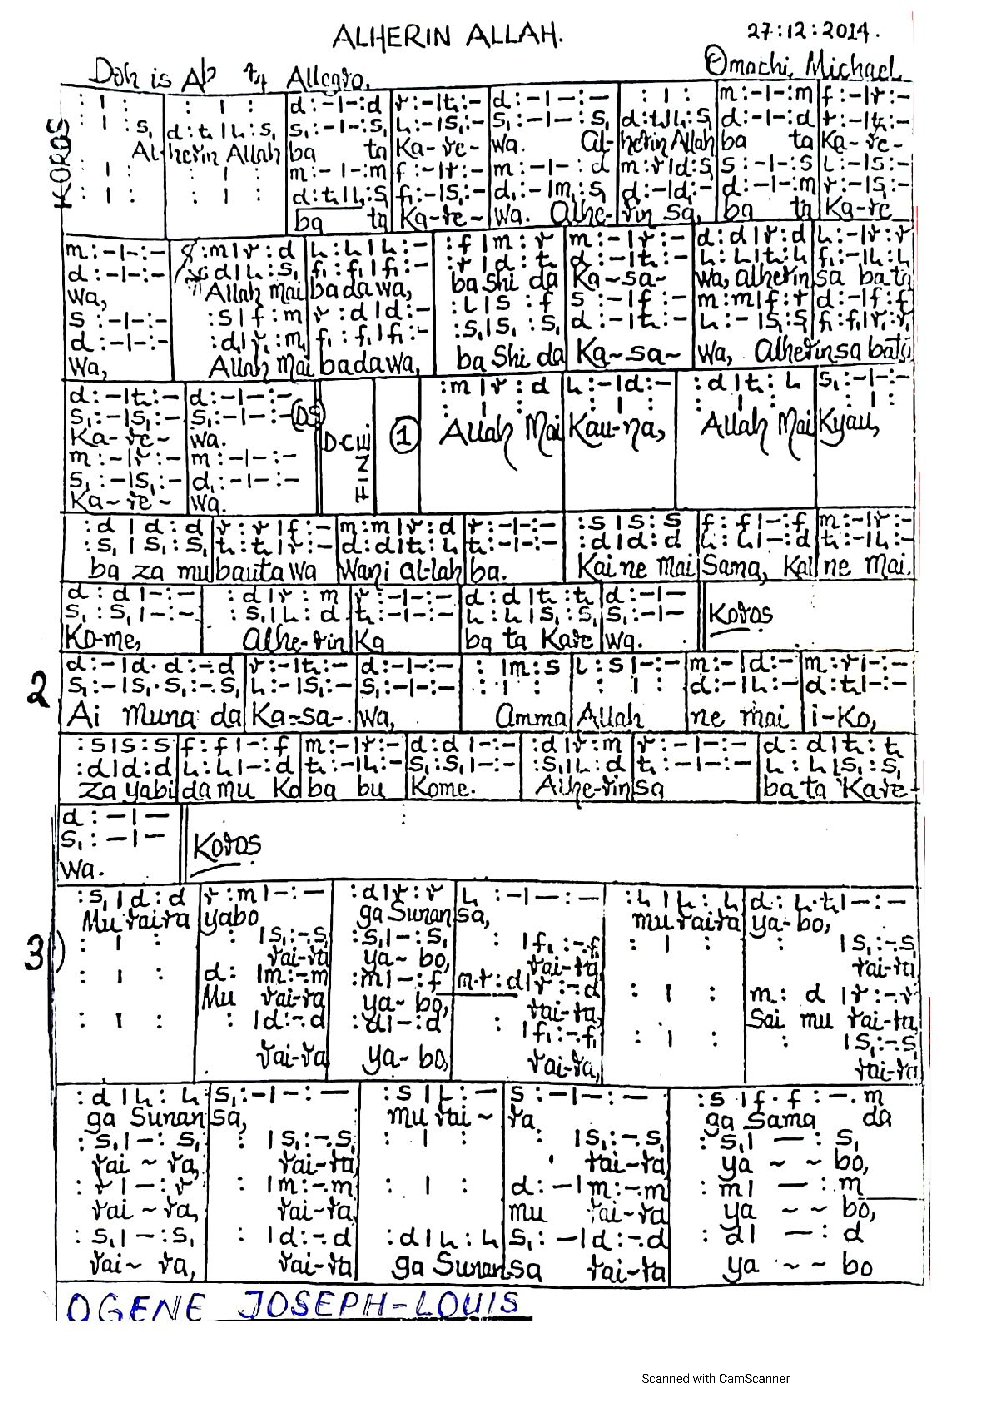 ALHERIN ALLAH.
27:12:2014.
Doh is Ab 4/4 Allegro.
©Omachi, Michael
KOROS
: | : | : | : | d:-|-:d | r:-|t,:- | d:-|-:- | : | : | m:-|-:m | f:-|r:-
: | :s, | d:t,|l,:s, | s,:-|-:s, | l,:-|s,:- | s,:-|-:s, | d:t,|l,:s, | d:-|-:d | r:-|t,:-
Al- herin Allah ba ta Ka-re- wa. Al- herin Allah ba ta Ka-re-
m:-|-:m | f:-|r:- | m:-|-:d | m:r|d:s, | s:-|-:s | l:-|s:-
d:t,|l,:s, | f,:-|s,:- | d,:-|m,:s, | d:-|d:- | d:-|-:m | r:-|s,:-
ba ta Ka-re- wa. Alhe-rin sa, ba ta Ka-re
m:-|-:- | :m|r:d | l,:l,|l,:- | :f|m:r | m:-|r:- | d:d|r:d | l,:-|r:r
d:-|-:- | :d|l,:s, | f,:f,|f,:- | :r|d:t, | d:-|t,:-
wa, Allah Mai badawa, ba shi da Ka-sa- wa, alherin sa bata
s:-|-:- | :s|f:m | r:d|d:- | :l|s:f | s:-|f:- | m:m|f:r | d:-|f:f
d:-|-:- | :d|r,:m, | f,:f,|f,:- | :s,|s,:s, | d:-|t,:- | l,:-|s,:s, | f,:f,|r,:r,
Wa, Allah Mai badawa, ba Shi da Ka-sa- Wa, Alherin sa bata
d:-|t,:- | d:-|-:- | :m|r:d | l,:-|d:- | :d|t,:l, | s,:-|-:-
s,:-|s,:- | s,:-|-:- (DS) | : | : | : | :
Ka-re- wa. D.C. FINE ① Allah Mai Kau-na, Allah Mai Kyau,
m:-|r:- | m:-|-:-
s,:-|s,:- | d,:-|-:-
Ka-re- wa.
:d|d:d | r:r|f:- | m:m|r:d | r:-|-:- | :s|s:s | f:f|-:f | m:-|r:-
:s,|s,:s, | t,:t,|r:- | d:d|t,:l, | t,:-|-:- | :d|d:d | l,:l,|-:d | t,:-|l,:-
ba za mu bauta wa Wani al-lah ba. Kai ne Mai Sama, Kai ne Mai.
d:d|-:- | :d|r:m | r:-|-:- | d:d|t,:t, | d:-|-
s,:s,|-:- | :s,|l,:d | t,:-|-:- | l,:l,|s,:s, | s,:-|- Koros
Ko-me, Alhe-rin Ka ba ta Kare wa.
2
d:-|d.d:-.d | r:-|t,:- | d:-|-:- | :|m:s | l:s|-:- | m:-|d:- | m:r|-:-
s,:-|s,.s,:-.s, | l,:-|s,:- | s,:-|-:- | :|: | :|: | d:-|l,:- | d:t,|-:-
Ai muna da Ka-sa- Wa, Amma Allah ne mai i-Ko,
:s|s:s | f:f|-:f | m:-|r:- | d:d|-:- | :d|r:m | r:-|-:- | d:d|t,:t,
:d|d:d | l,:l,|-:d | t,:-|l,:- | s,:s,|-:- | :s,|l,:d | t,:-|-:- | l,:l,|s,:s,
za yabi da mu Ko ba bu Kome. Alhe-rin sa ba ta Kare-
d:-|-
s,:-|- Koros
Wa.
3)
:s,|d:d | r:m|-:- | :d|r:r | l,:-|-:- | :l,|l,:l, | d:l,.t,|-:-
Mu raira yabo ga Sunan sa, mu raira ya-bo,
: | : | :|s,:-.s, | :s,|-:s, | :|f,:-.f, | : | : | |s,:-.s,
rai-ra ya-bo, rai-ra, rai-ra
: | : | d:|m:-.m | :m|-:f | m.r:d|r:-.d | : | : | m:d|r:-.r
Mu rai-ra ya-bo, rai-ra, Sai mu rai-ra
: | : | :|d:-.d | :d|-:d | :|f,:-.f, | : | : | :|s,:-.s,
rai-ra ya-bo, rai-ra, rai-ra
:d|l,:l, | s,:-|-:- | :s|l:- | s:-|-:- | :s|f.f:-.m
ga Sunan sa, mu rai~ ra. ga Sama da
:s,|-:s, | :|s,:-.s, | :|: | :|s,:-.s, | :s,|-:s,
rai~ra, rai-ra rai-ra ya ~ ~ bo,
:r|-:r | :|m:-.m | :|: | d:-|m:-.m | :m|-:m
rai~ra, rai-ra mu rai-ra ya ~ ~ bo,
:s,|-:s, | :|d:-.d | :d|l,:l, | s,:-|d:-.d | :d|-:d
rai~ra, rai-ra ga Sunan sa rai-ra ya ~ ~ bo
OGENE JOSEPH-LOUIS
Scanned with CamScanner